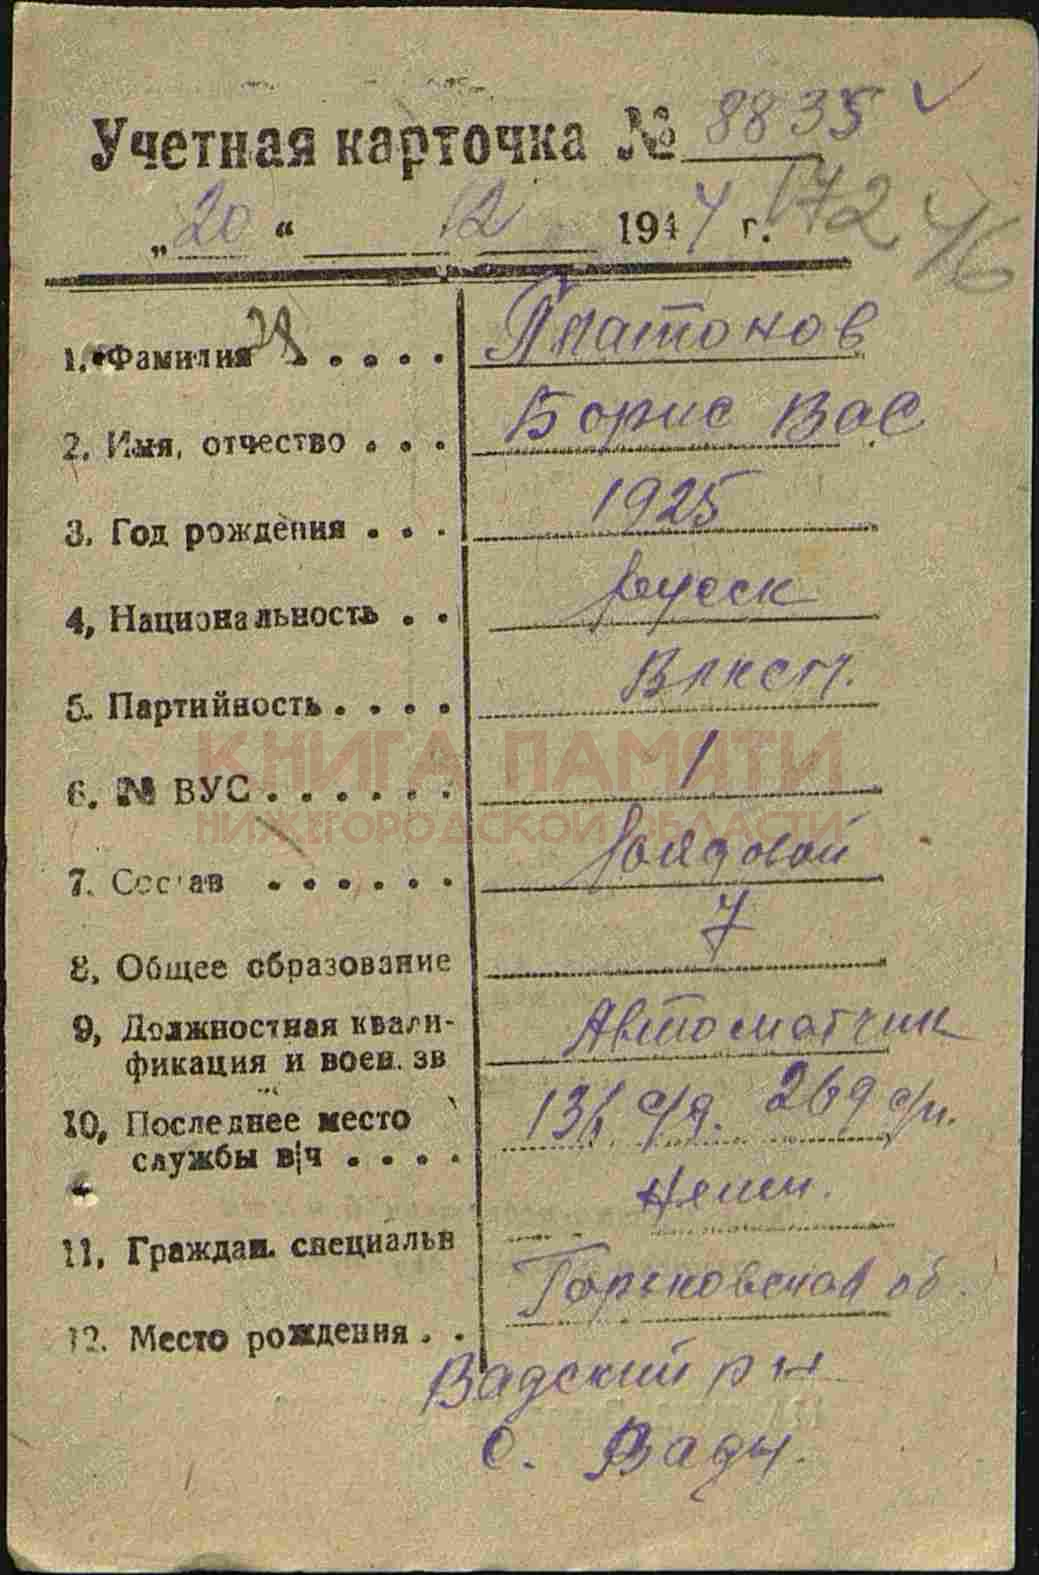 Учетная карточка № 8835
„20“ 12 1944 г. 172 46
1. Фамилия Платонов
2. Имя, отчество Борис Вас
3. Год рождения 1925
4, Национальность русск
5. Партийность Влксм.
КНИГА ПАМЯТИ
6. № ВУС 1
НИЖЕГОРОДСКОЙ ОБЛАСТИ
7. Состав Рядовой
8, Общее образование 7
9, Должностная квали-
фикация и воен. зв Автоматчик
10, Последнее место
службы в/ч с/д. 269 с/п.
11, Граждан. специальн
12. Место рождения Горьковская об.
Вадский р н
с. Вады.